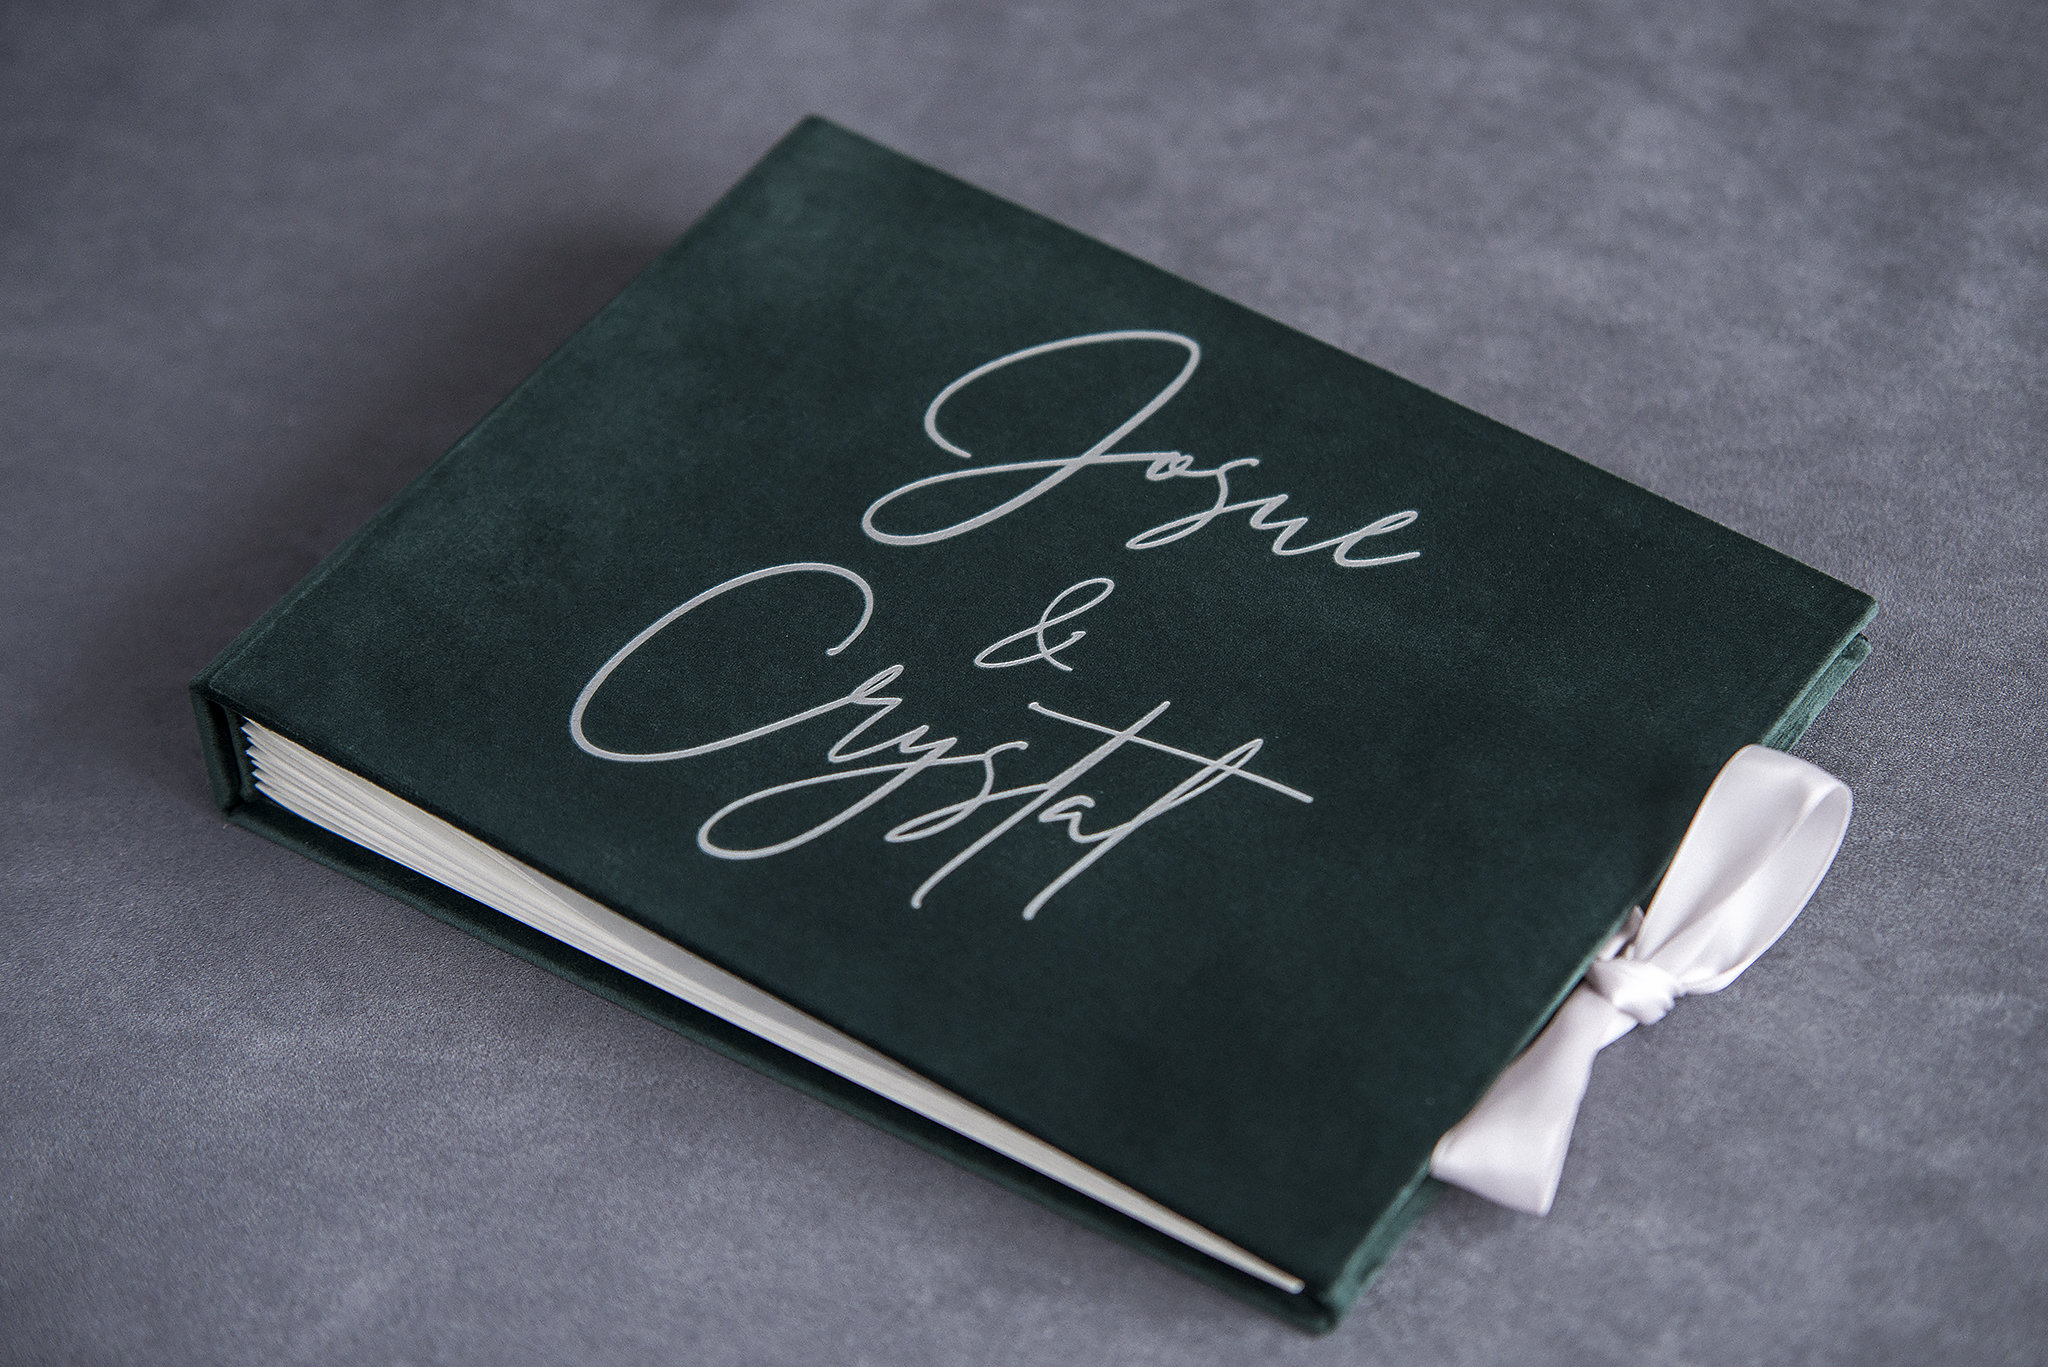 Josue
&
Crystal